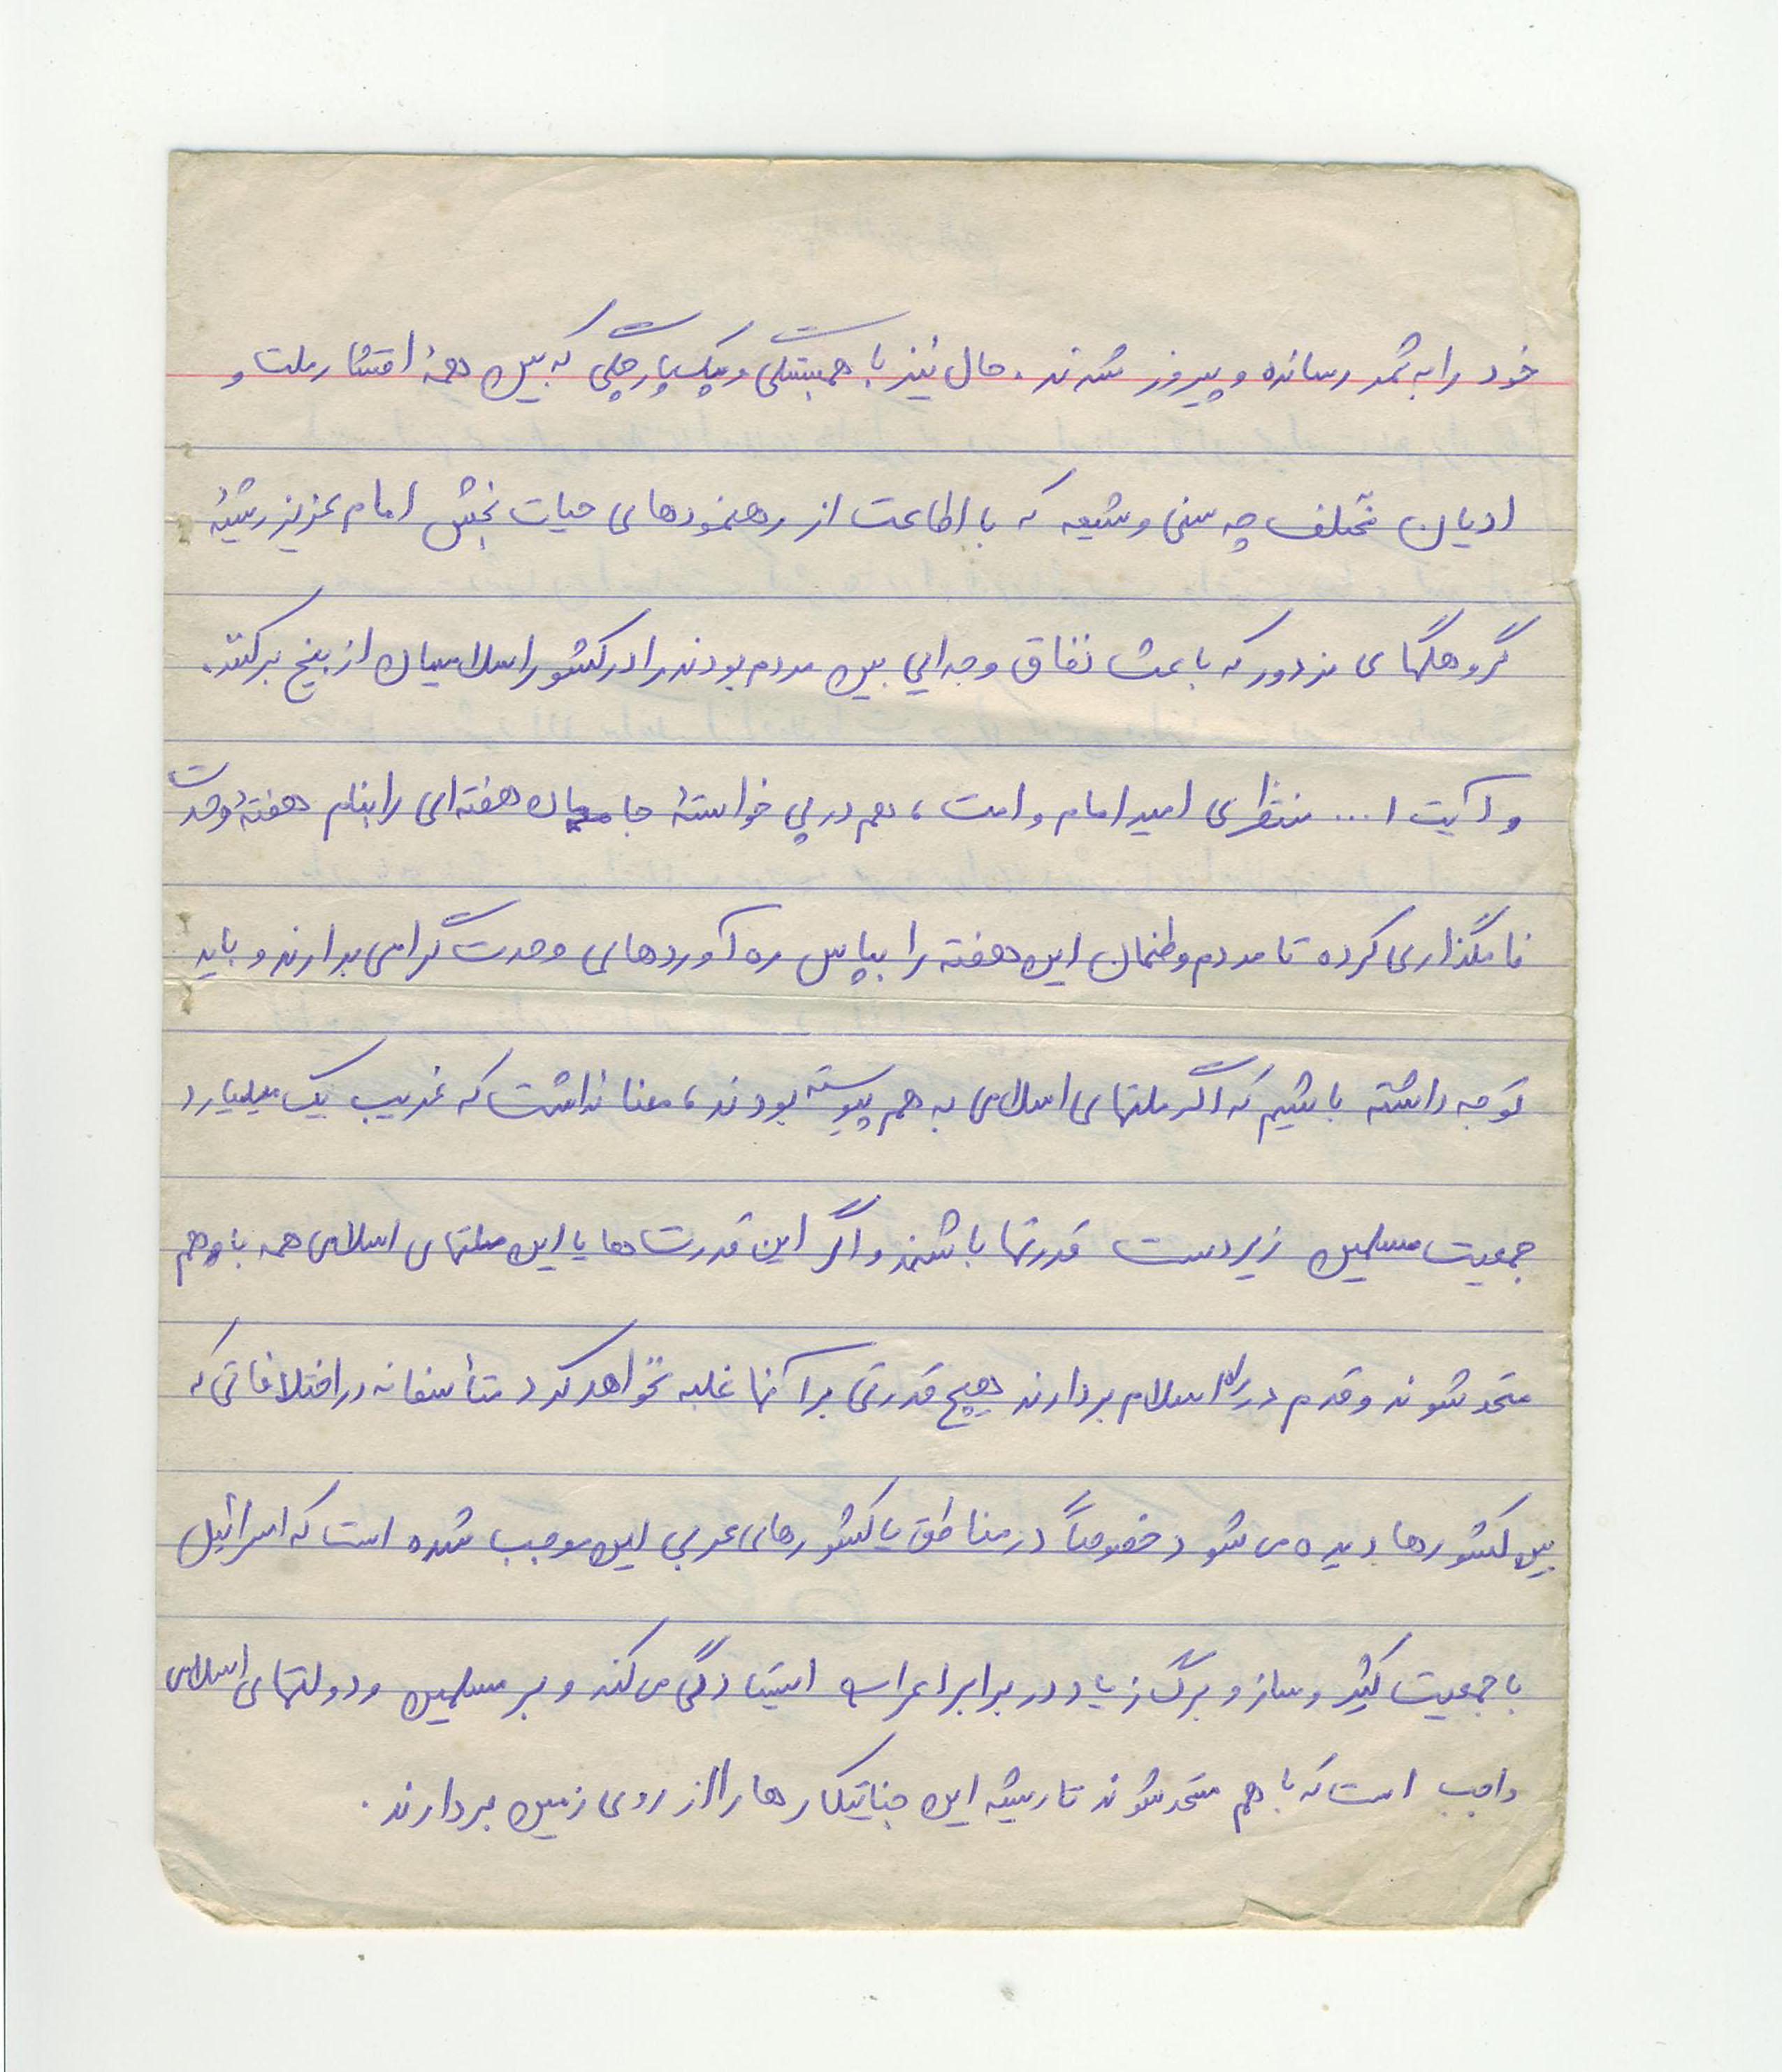 خود را به ثمر رسانده و پیروز شدند. حال نیز با همبستگی و یکپارچگی که بین همهٔ اقشار ملت و
ادیان مختلف چه سنی و شیعه که با اطاعت از رهنمودهای حیات بخش امام عزیز ریشهٔ
گروهکهای مزدور که باعث نفاق و جدایی بین مردم بودند را در کشور اسلامیمان از بیخ برکنند.
و آیت ا... منتظری امید امام و امت، هم در پی خواستهٔ جامعمان هفته‌ای را بنام هفتهٔ وحدت
نامگذاری کرده تا مردم وطنمان این هفته را بپاس ره‌آوردهای وحدت گرامی بدارند و باید
توجه داشته باشیم که اگر ملتهای اسلامی به هم پیوسته بودند، معنا نداشت که غریب یک میلیارد
جمعیت مسلمین زیردست قدرتها باشند و اگر این قدرت‌ها با این ملتهای اسلامی همه با هم
متحد شوند و قدم در راه اسلام بردارند هیچ قدرتی بر آنها غلبه نخواهد کرد متأسفانه در اختلافاتی که
بین کشورها دیده می‌شود خصوصاً در مناطق یا کشورهای عربی این موجب شده است که اسرائیل
با جمعیت کثیر و ساز و برگ زیاد در برابر اعراب ایستادگی می‌کند و بر مسلمین و دولتهای اسلامی
واجب است که با هم متحد شوند تا ریشه این جنایتکارها را از روی زمین بردارند.